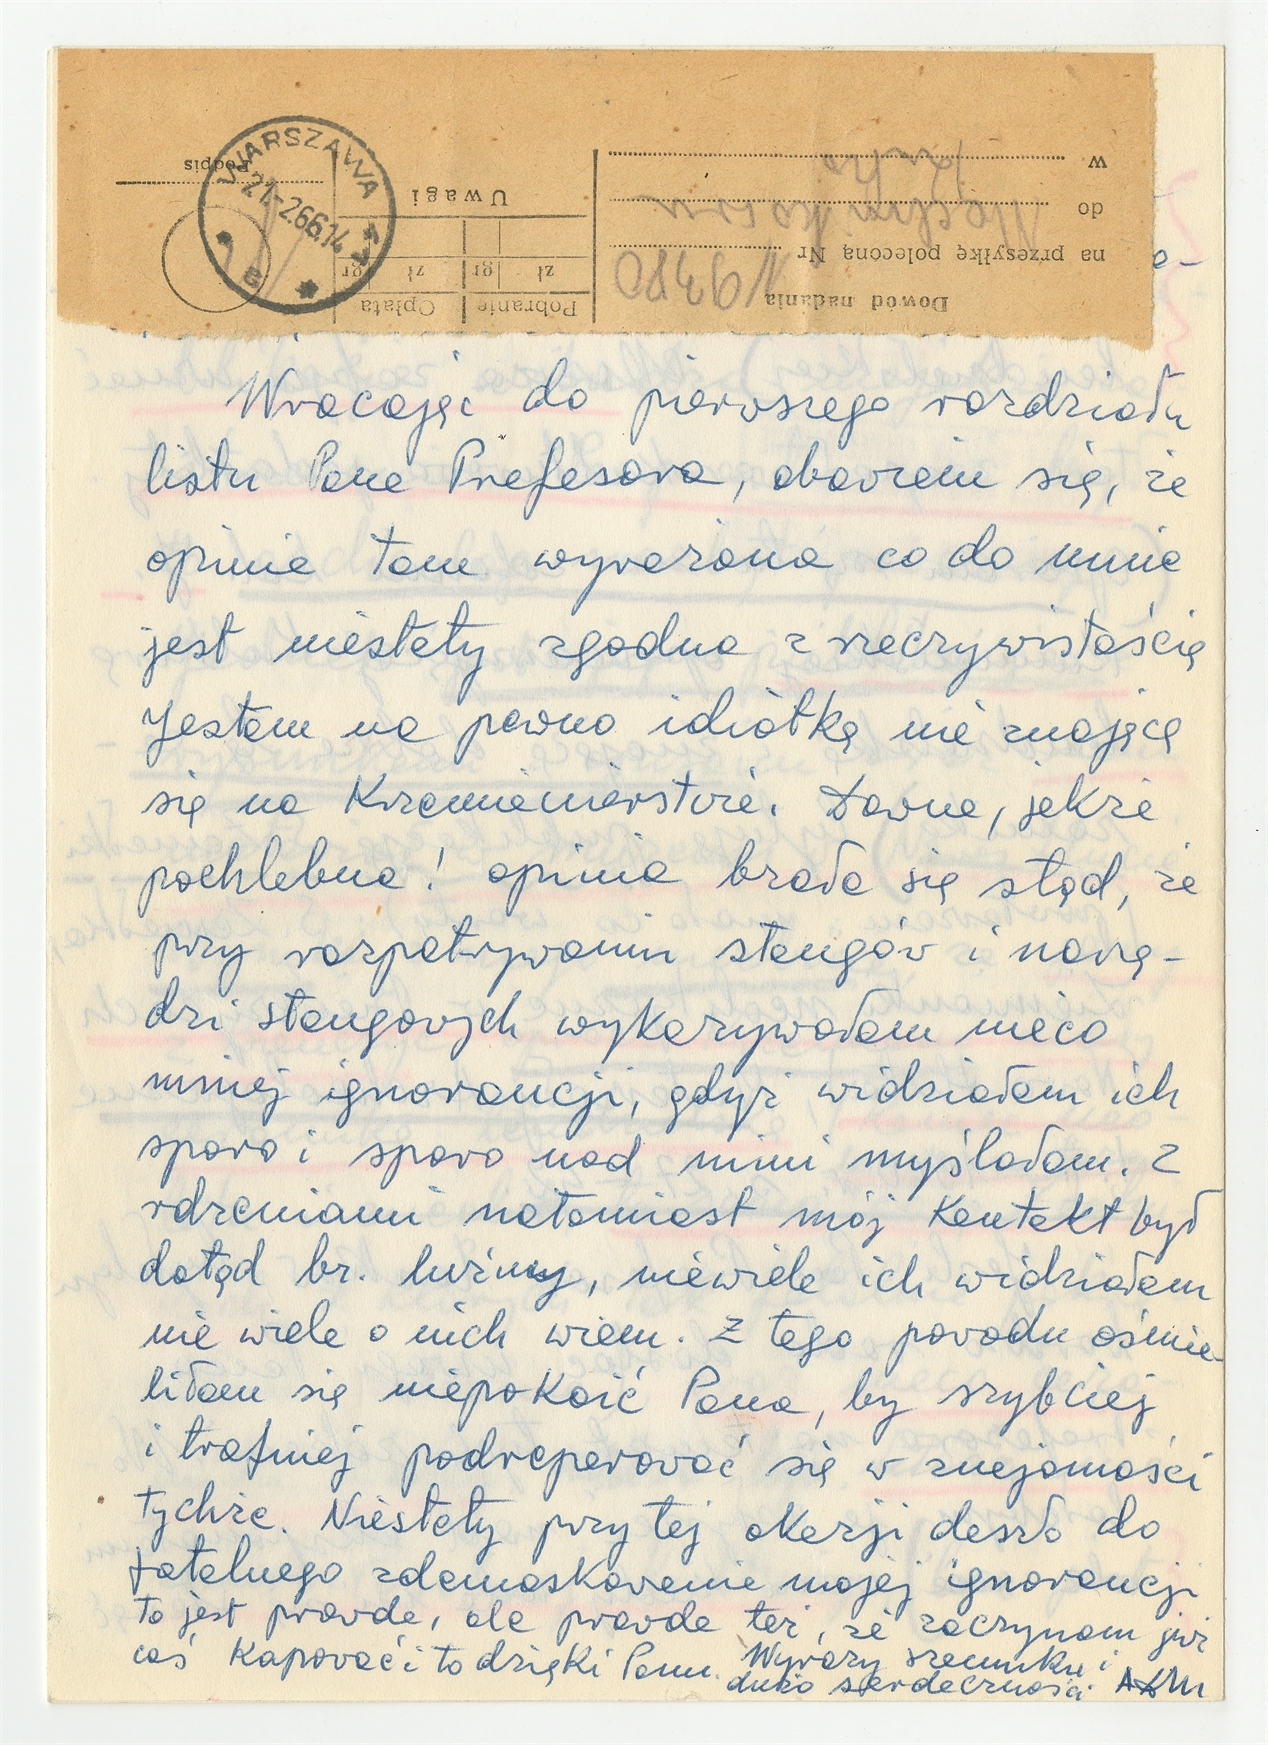 Dowód nadania
na przesyłkę poleconą Nr 11/9380
do
w
Pobranie
Opłata
zł gr zł gr
Uwagi
Podpis
WARSZAWA
21.-2.66.14
Wracając do pierwszego rozdziału
listu Pana Profesora, obawiam się, że
opinia tam wyrażona co do mnie
jest niestety zgodna z rzeczywistością
Jestem na pewno idiotką nie znającą
się na Krzemieniarstwie. Dawna, jakże
pochlebna! opinia brała się stąd, że
przy rozpatrywaniu sztangów i narzę-
dzi sztangowych wykazywałam nieco
mniej ignorancji, gdyż widziałam ich
sporo i sporo nad nimi myślałam. Z
rdzeniami natomiast mój Kontakt był
dotąd br. luźny, niewiele ich widziałam
nie wiele o nich wiem. Z tego powodu ośmie-
liłam się niepokoić Pana, by szybciej
i trafniej podreperować się w znajomości
tychże. Niestety przy tej okazji doszło do
fatalnego zdemaskowania mojej ignorancji
to jest prawda, ale prawda też, że zaczynam już
coś Kapować i to dzięki Panu. Wyrazy szacunku i
dużo serdeczności